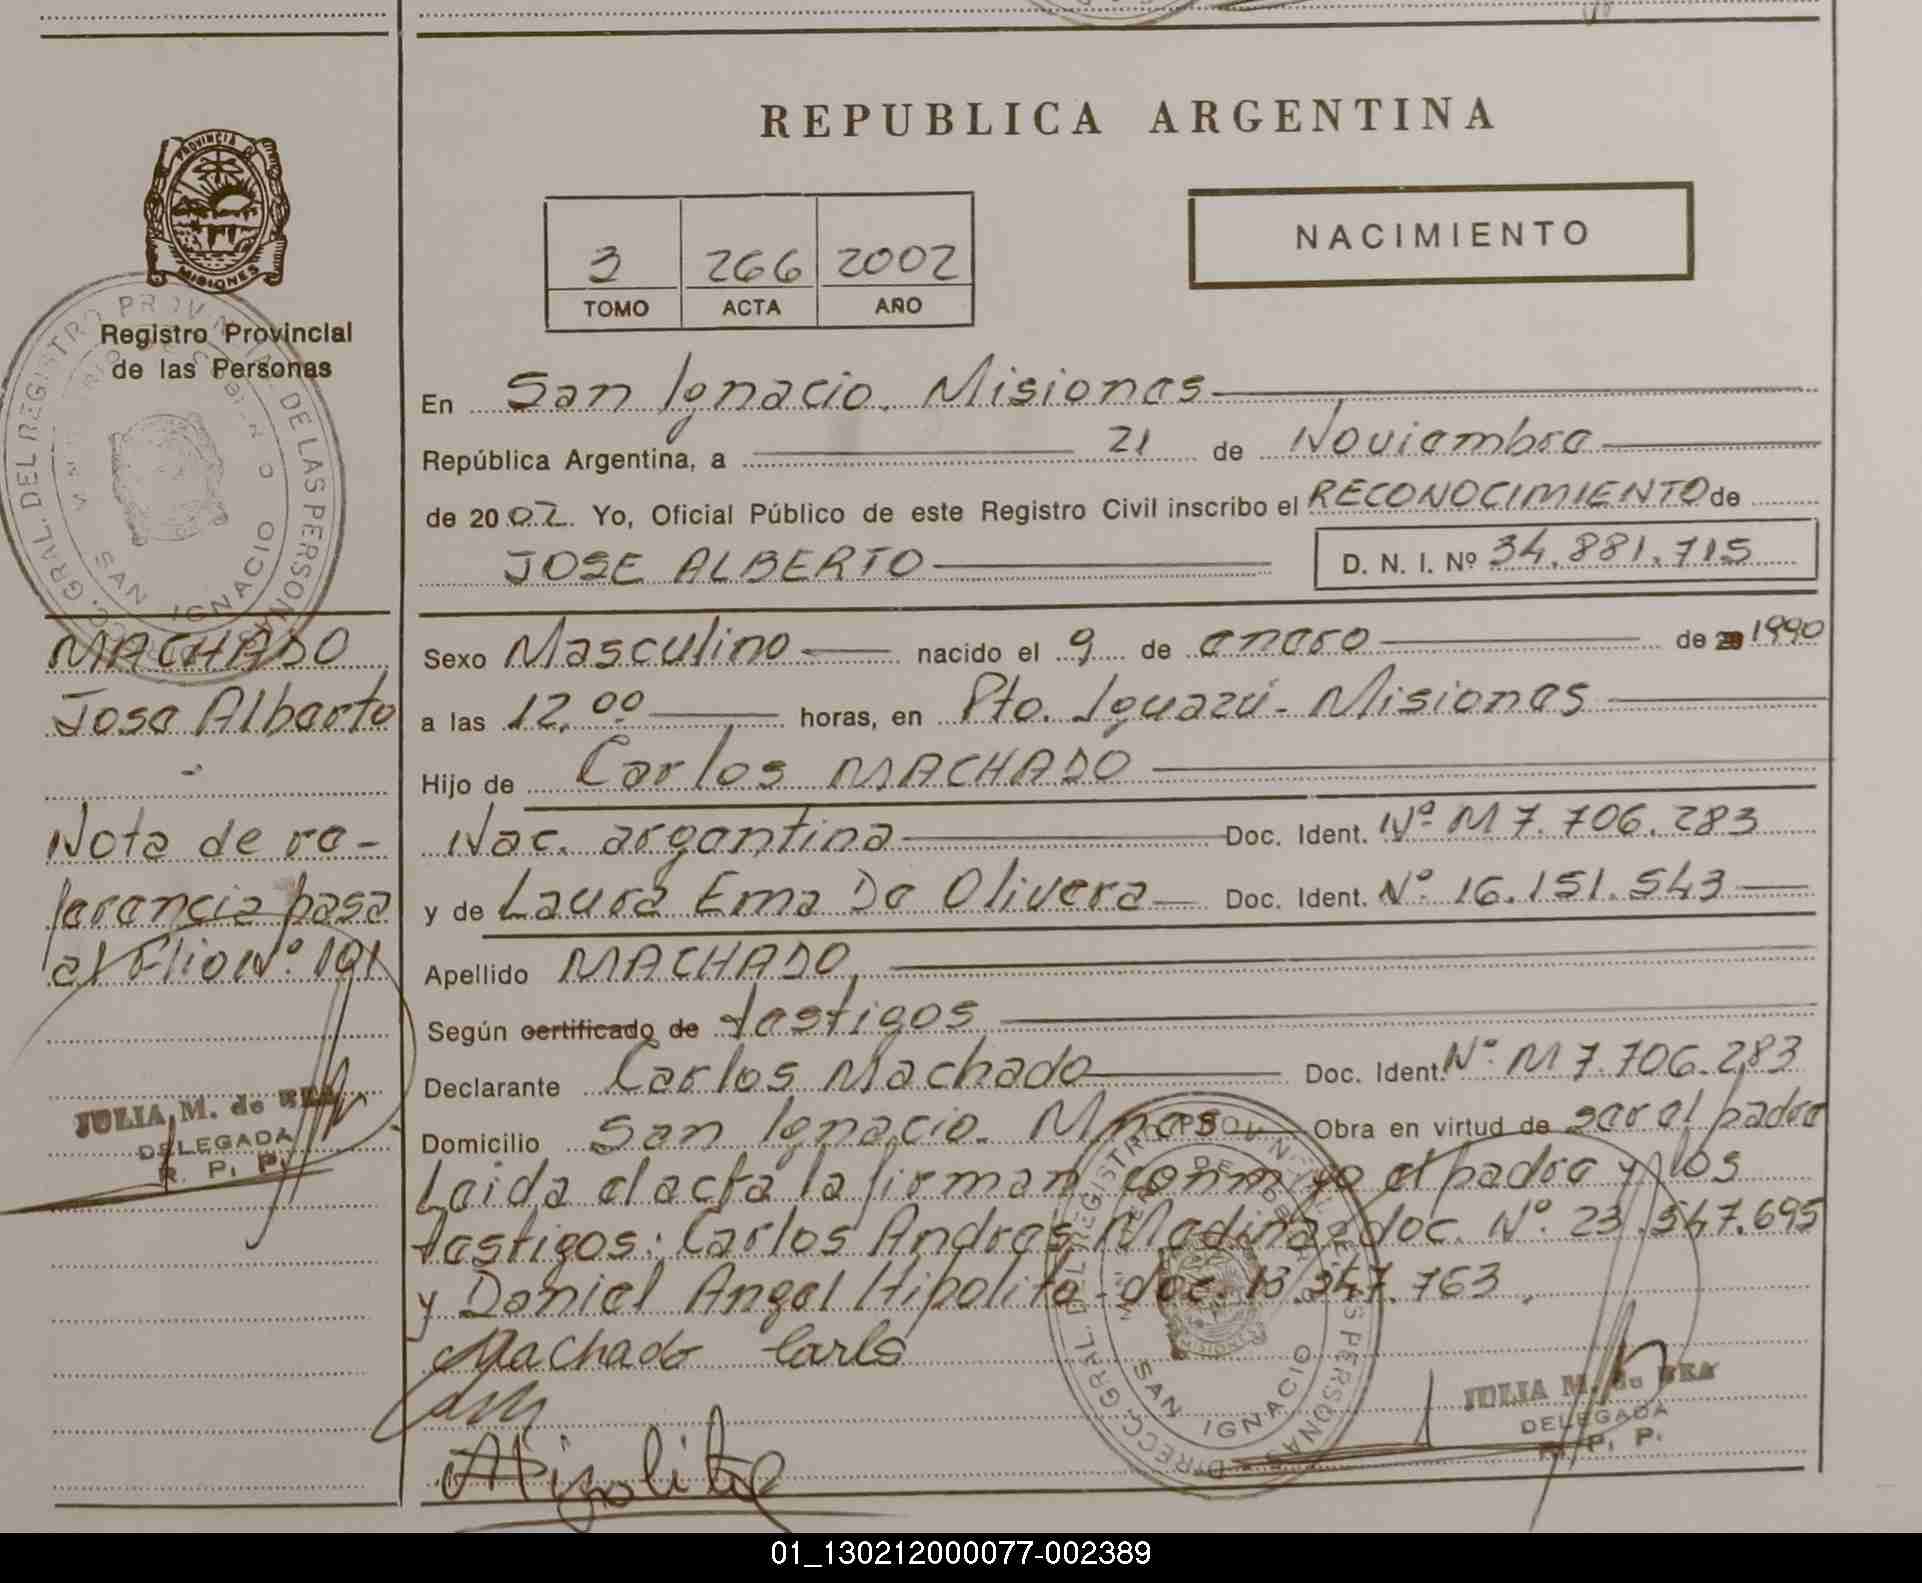 REPUBLICA ARGENTINA
PROVINCIA DE MISIONES
Registro Provincial
de las Personas
3 266 2002
TOMO ACTA AÑO
NACIMIENTO
En San Ignacio. Misiones
República Argentina, a 21 de Noviembre
de 2002. Yo, Oficial Público de este Registro Civil inscribo el RECONOCIMIENTO de
JOSE ALBERTO D. N. I. Nº 34.881.715
Sexo Masculino nacido el 9 de enero de 1990
a las 12.00 horas, en Pto. Iguazú - Misiones
Hijo de Carlos MACHADO
Nac. argentina Doc. Ident. Nº M 7.706.283
y de Laura Ema De Olivera Doc. Ident. Nº 16.151.543
Apellido MACHADO
Según certificado de testigos
Declarante Carlos Machado Doc. Ident. Nº M 7.706.283
Domicilio San Ignacio. Mnes Obra en virtud de ser el padre
Leida el acta la firman conmigo el padre y los
testigos: Carlos Andres Medina doc. Nº 23.547.695
y Daniel Angel Hipolito - doc. 13.347.763.
Machado Carls
Hipolito
JULIA M. de REA
DELEGADA
R. P. P.
MACHADO
Jose Alberto
Nota de re-
ferencia pasa
al Flio Nº 191
JULIA M. de REA
DELEGADA
R. P. P.
DIRECC. GRAL. DEL REGISTRO PROVINCIAL DE LAS PERSONAS
SAN IGNACIO
DIRECC. GRAL. DEL REGISTRO PROVINCIAL DE LAS PERSONAS
SAN IGNACIO
01_130212000077-002389